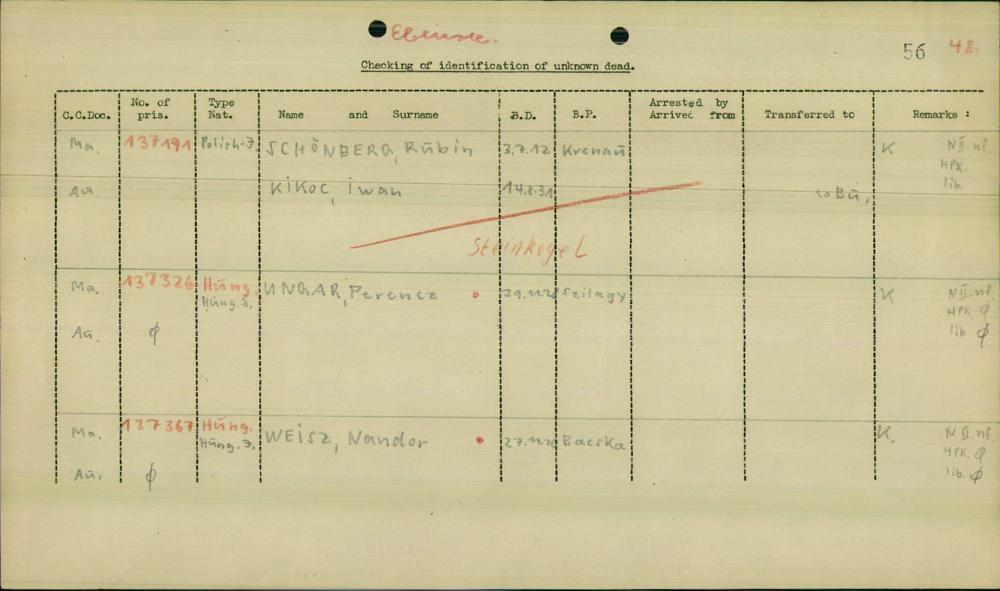 Ebensee.
56 48.
Checking of identification of unknown dead.
C.C.Doc. No. of pris. Type Nat. Name and Surname B.D. B.P. Arrested by Arrived from Transferred to Remarks :
Ma. 137191 Polish-J. SCHÖNBERG, Rubin 3.7.12 Krenau K N II. nf.
HPK.
lib.
Au. KIKOC, iwan 14.8.31 to Bu,
Steinkogel
Ma. 137326 Hung. UNGAR, Ferencz Szilagy K N II. nf.
Hung J. HPK. φ
Au. φ lib φ
Ma. 137367 Hung. WEISZ, Nandor Bacska K. N II. nf.
Hung. J. HPK. φ
Au. φ lib. φ